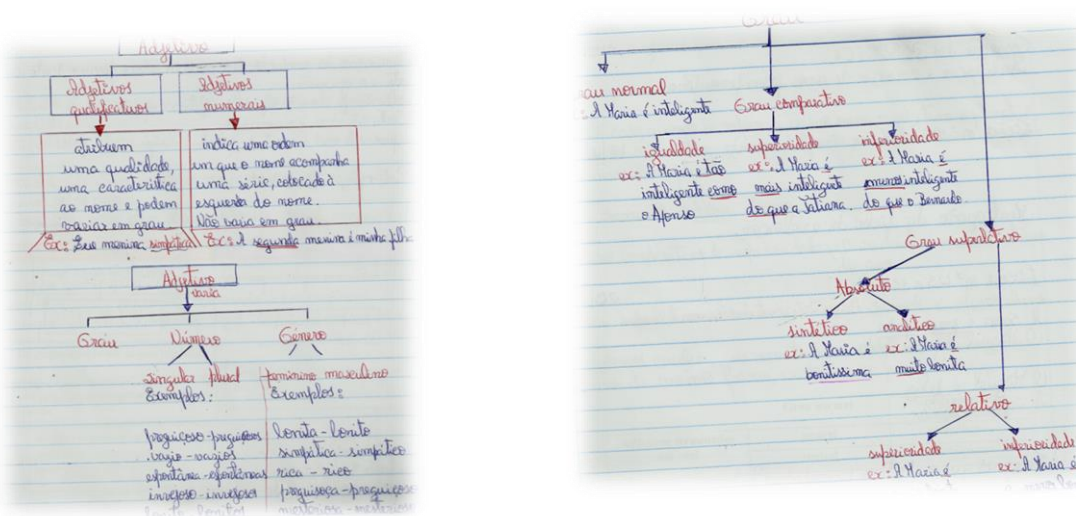 Adjetivo
Adjetivos
qualificativos
Adjetivos
numerais
atribuem
uma qualidade,
uma característica
ao nome e podem
variar em grau.
Ex: Que menina simpática
indica uma ordem
em que o nome acompanha
uma série, colocado à
esquerda do nome.
Não varia em grau.
Ex: A segunda menina é minha filha
Adjetivo
varia
Grau
Número
Género
singular plural
Exemplos:
preguiçoso-preguiçosos
vazio-vazios
espontânea-espontâneas
invejoso-invejosos
bonito bonitos
feminino masculino
Exemplos:
bonita-bonito
simpática-simpático
rica-rico
preguisoça-preguiçoso
misteriosa-misterioso
Grau
Grau normal
: A Maria é inteligente
Grau comparativo
igualdade
ex: A Maria é tão
inteligente como
o Afonso
superioridade
ex: A Maria é
mais inteligente
do que a Tatiana.
inferioridade
ex: A Maria é
menos inteligente
do que o Bernardo.
Grau superlativo
Absoluto
sintético
ex: A Maria é
bonitíssima
analítico
ex: A Maria é
muito bonita
relativo
superioridade
ex: A Maria é
inferioridade
ex: A Maria é